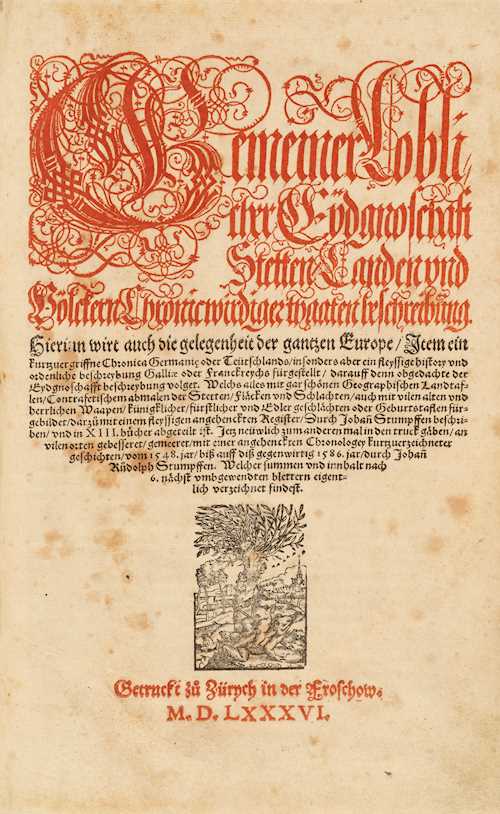 Gemeiner Lobli⸗
cher Eydgnoschafft
Stetten/Landen vnd
Völckern Chronic wirdiger thaaten beschreybung.
Hierinn wirt auch die gelegenheit der gantzen Europe/Item ein
kurtzuergriffne Chronica Germanię oder Teütschlands/insonders aber ein fleyssige history vnd
ordenliche beschreybung Gallię oder Franckreychs fürgestellt/darauff denn obgedachte der
Eydgnoschafft beschreybung volget. Welchs alles mit gar schönen Geographischen Landtaf⸗
len/Contrafetischem abmalen der Stetten/Fläcken vnd Schlachten/auch mit vilen alten vnd
herrlichen Waapen/künigklicher/fürstlicher vnd Edler geschlächten oder Geburtstaflen für⸗
gebildet/darzů mit einem fleyssigen angehenckten Register/Durch Johañ Stumpffen beschri⸗
ben/vnd in XIII. bücher abgeteilt ist. Jetz neüwlich zum anderen mal in den truck gäben/an
vilen orten gebesseret/gemeeret/mit einer angehenckten Chronologey kurtzuerzeichneter
geschichten/vom 1548. jar/biß auff diß gegenwirtig 1586. jar/durch Johañ
Růdolph Stumpffen. Welcher summen vnd innhalt nach
6. nächst vmbgewendten blettern eigent⸗
lich verzeichnet findest.
Getruckt zů Zürych in der Froschow.
M. D. LXXXVI.